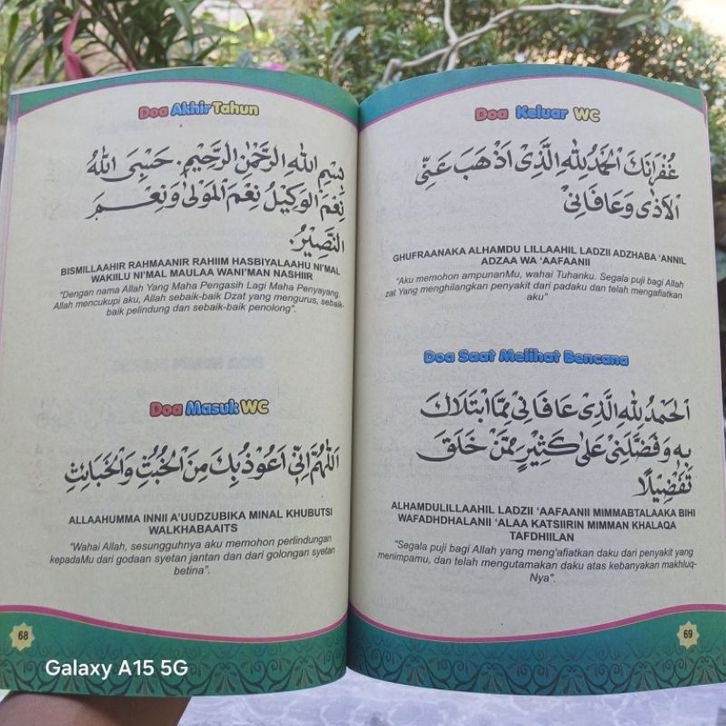 Doa Akhir Tahun
بِسْمِ اللهِ الرَّحْمٰنِ الرَّحِيْمِ. حَسْبِيَ اللهُ
نِعْمَ الْوَكِيْلُ نِعْمَ الْمَوْلٰى وَنِعْمَ
النَّصِيْرُ.
BISMILLAAHIR RAHMAANIR RAHIIM HASBIYALAAHU NI'MAL
WAKIILU NI'MAL MAULAA WANI'MAN NASHIIR
"Dengan nama Allah Yang Maha Pengasih Lagi Maha Penyayang.
Allah mencukupi aku, Allah sebaik-baik Dzat yang mengurus, sebaik-
baik pelindung dan sebaik-baik penolong".
Doa Masuk WC
اَللّٰهُمَّ اِنِّيْ اَعُوْذُبِكَ مِنَ الْخُبُثِ وَالْخَبَائِثِ
ALLAAHUMMA INNII A'UUDZUBIKA MINAL KHUBUTSI
WALKHABAAITS
"Wahai Allah, sesungguhnya aku memohon perlindungan
kepadaMu dari godaan syetan jantan dan dari golongan syetan
betina".
68
Doa Keluar WC
غُفْرَانَكَ اَلْحَمْدُ لِلّٰهِ الَّذِيْ اَذْهَبَ عَنِّى
الْاَذٰى وَعَافَانِيْ
GHUFRAANAKA ALHAMDU LILLAAHIL LADZII ADZHABA 'ANNIL
ADZAA WA 'AAFAANII
"Aku memohon ampunanMu, wahai Tuhanku. Segala puji bagi Allah
zat Yang menghilangkan penyakit dari padaku dan telah mengafiatkan
aku"
Doa Saat Melihat Bencana
اَلْحَمْدُ لِلّٰهِ الَّذِيْ عَافَانِيْ مِمَّا ابْتَلَاكَ
بِهِ وَفَضَّلَنِيْ عَلٰى كَثِيْرٍ مِمَّنْ خَلَقَ
تَفْضِيْلًا
ALHAMDULILLAAHIL LADZII 'AAFAANII MIMMABTALAAKA BIHI
WAFADHDHALANII 'ALAA KATSIIRIN MIMMAN KHALAQA
TAFDHIILAN
"Segala puji bagi Allah yang meng'afiatkan daku dari penyakit yang
menimpamu, dan telah mengutamakan daku atas kebanyakan makhluq-
Nya".
69
Galaxy A15 5G